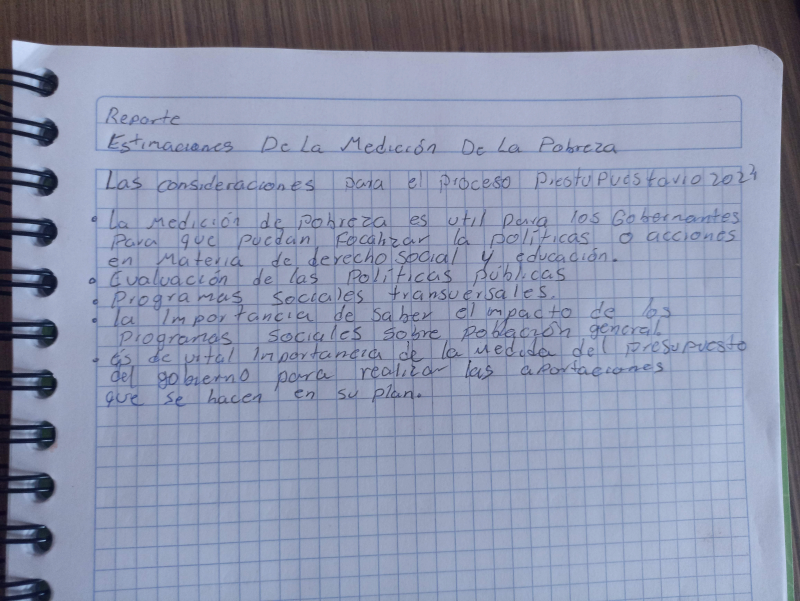 Reporte
Estimaciones De La Medición De La Pobreza
Las consideraciones para el proceso Prestupuestario 2024
• La medición de pobreza es util para los Gobernantes
para que puedan Focalizar la políticas o acciones
en materia de derecho social y educación.
• Evaluación de las Políticas públicas
• Programas sociales transversales.
• la Importancia de saber el impacto de los
programas sociales sobre población general.
• es de vital Inportancia de la medida del presupuesto
del gobierno para realizar las aportaciones
que se hacen en su plan.